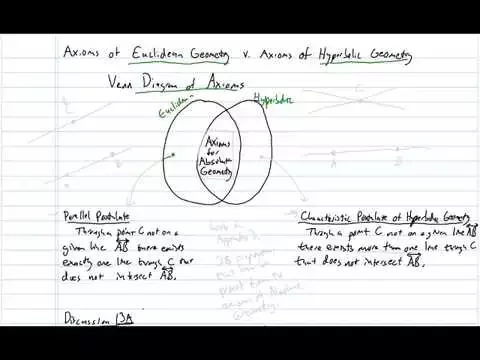 Axioms of Euclidean Geometry v. Axioms of Hyperbolic Geometry
Venn Diagram of Axioms
Euclidean
Hyperbolic
Axioms
for
Absolute
Geometry
Parallel Postulate
Through a point C not on a
given line AB there exists
exactly one line through C
does not intersect AB.
Characteristic Postulate of Hyperbolic Geometry
Through a point C not on a given line AB
there exists more than one line through C
that does not intersect AB.
axioms of Absolute
Geometry.
Discussion 13A